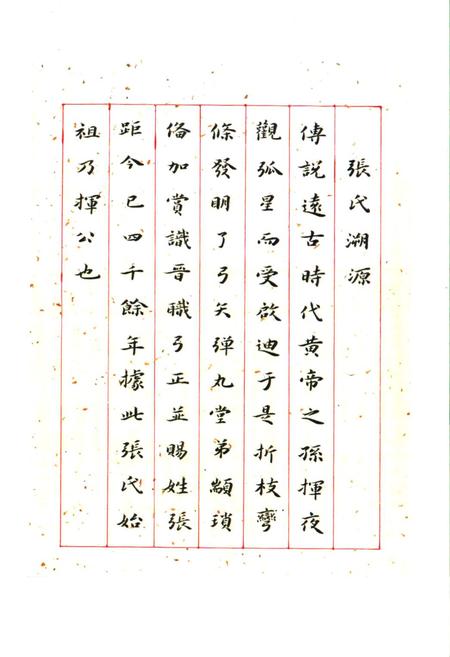 張氏溯源
傳説遠古時代黄帝之孫揮夜
觀弧星而受啟迪于是折枝彎
條發明了弓矢弹丸堂弟顓頊
俻加賞識晋職弓正並賜姓張
距今已四千餘年據此張氏始
祖乃揮公也